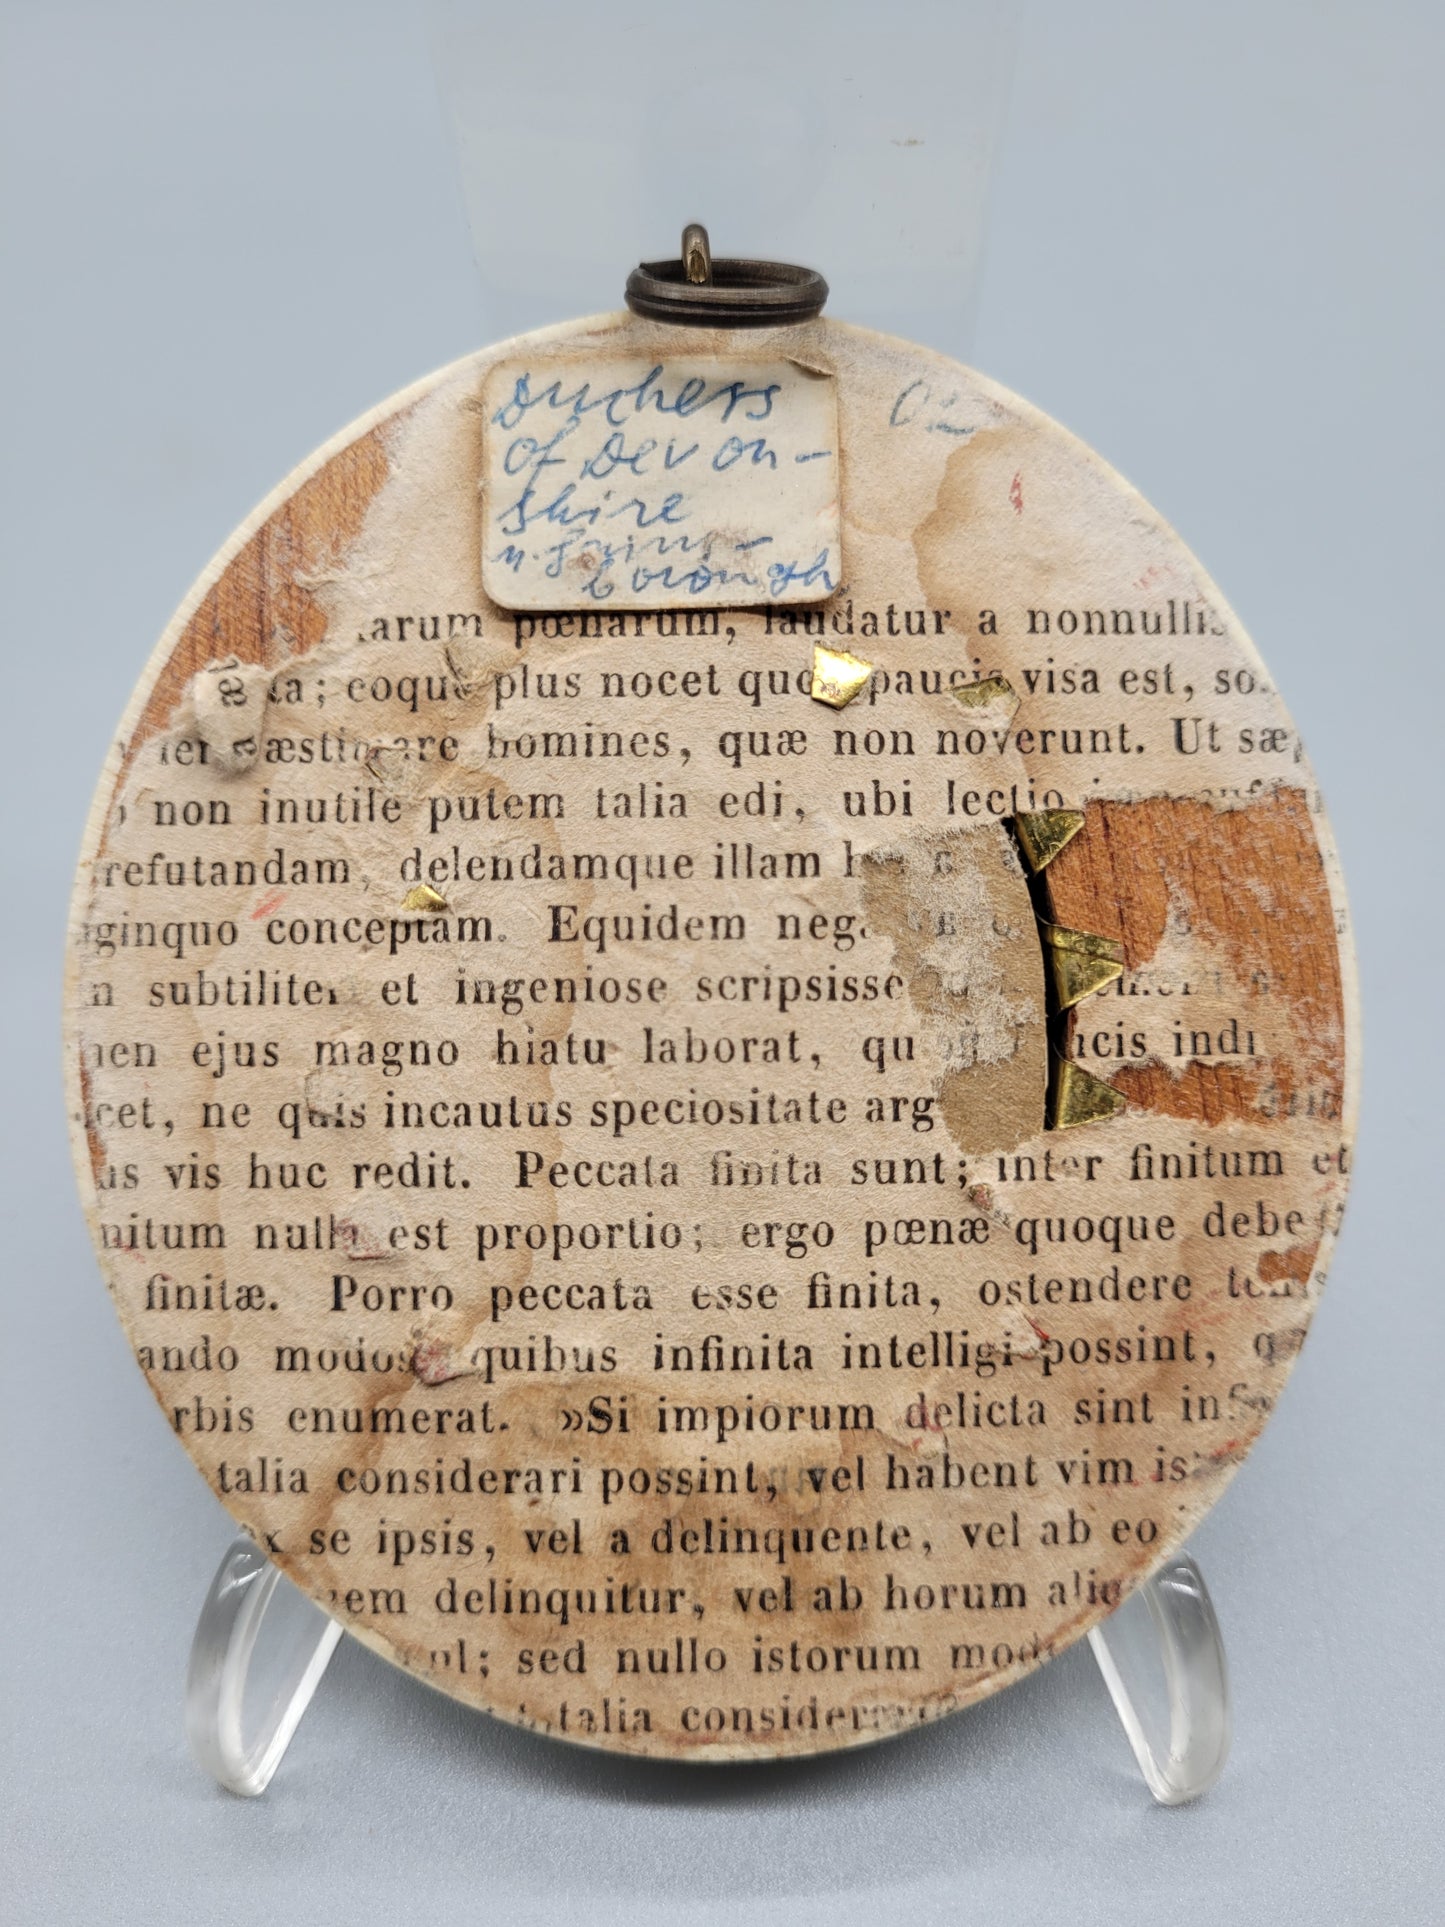 Duchess
of Devon-
shire
n. Gains-
borough
arum pœnarum, laudatur a nonnullis
ta; eoque plus nocet quo paucis visa est, so
æstimare homines, quæ non noverunt. Ut sæp
non inutile putem talia edi, ubi lectio
refutandam, delendamque illam
ginquo conceptam. Equidem neg
n subtiliter et ingeniose scripsisse
en ejus magno hiatu laborat, qu ucis indi
cet, ne quis incautus speciositate arg
us vis huc redit. Peccata finita sunt; inter finitum et
nitum nulla est proportio; ergo pœnæ quoque debe
finitæ. Porro peccata esse finita, ostendere
ando modos quibus infinita intelligi possint, q
rbis enumerat. »Si impiorum delicta sint inf
talia considerari possint, vel habent vim is
x se ipsis, vel a delinquente, vel ab eo
em delinquitur, vel ab horum aliq
ul; sed nullo istorum mod
talia consider